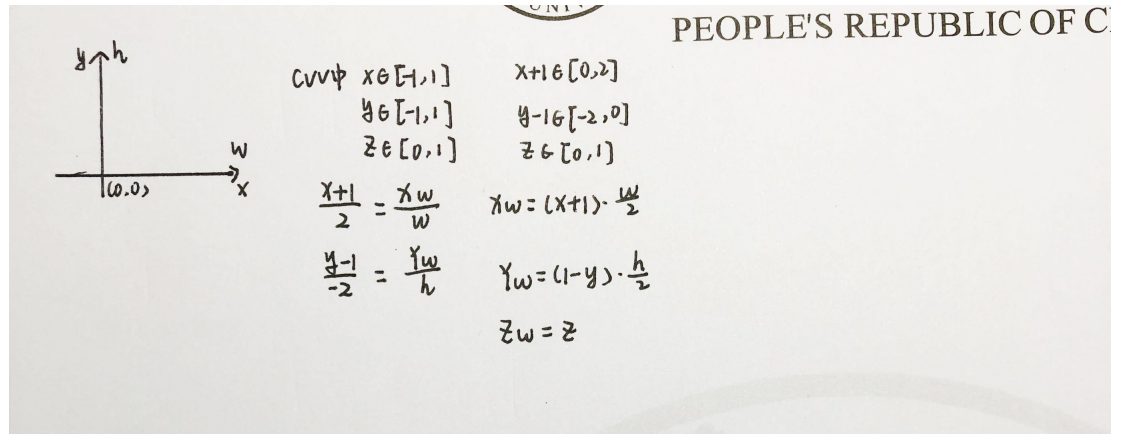 UNIV
PEOPLE'S REPUBLIC OF C
y h
W
x
(0,0)
CVV中 x∈[-1,1] x+1∈[0,2]
y∈[-1,1] y-1∈[-2,0]
z∈[0,1] z∈[0,1]
(x+1)/2 = Xw/W Xw=(x+1)·W/2
(y-1)/-2 = Yw/h Yw=(1-y)·h/2
Zw=z